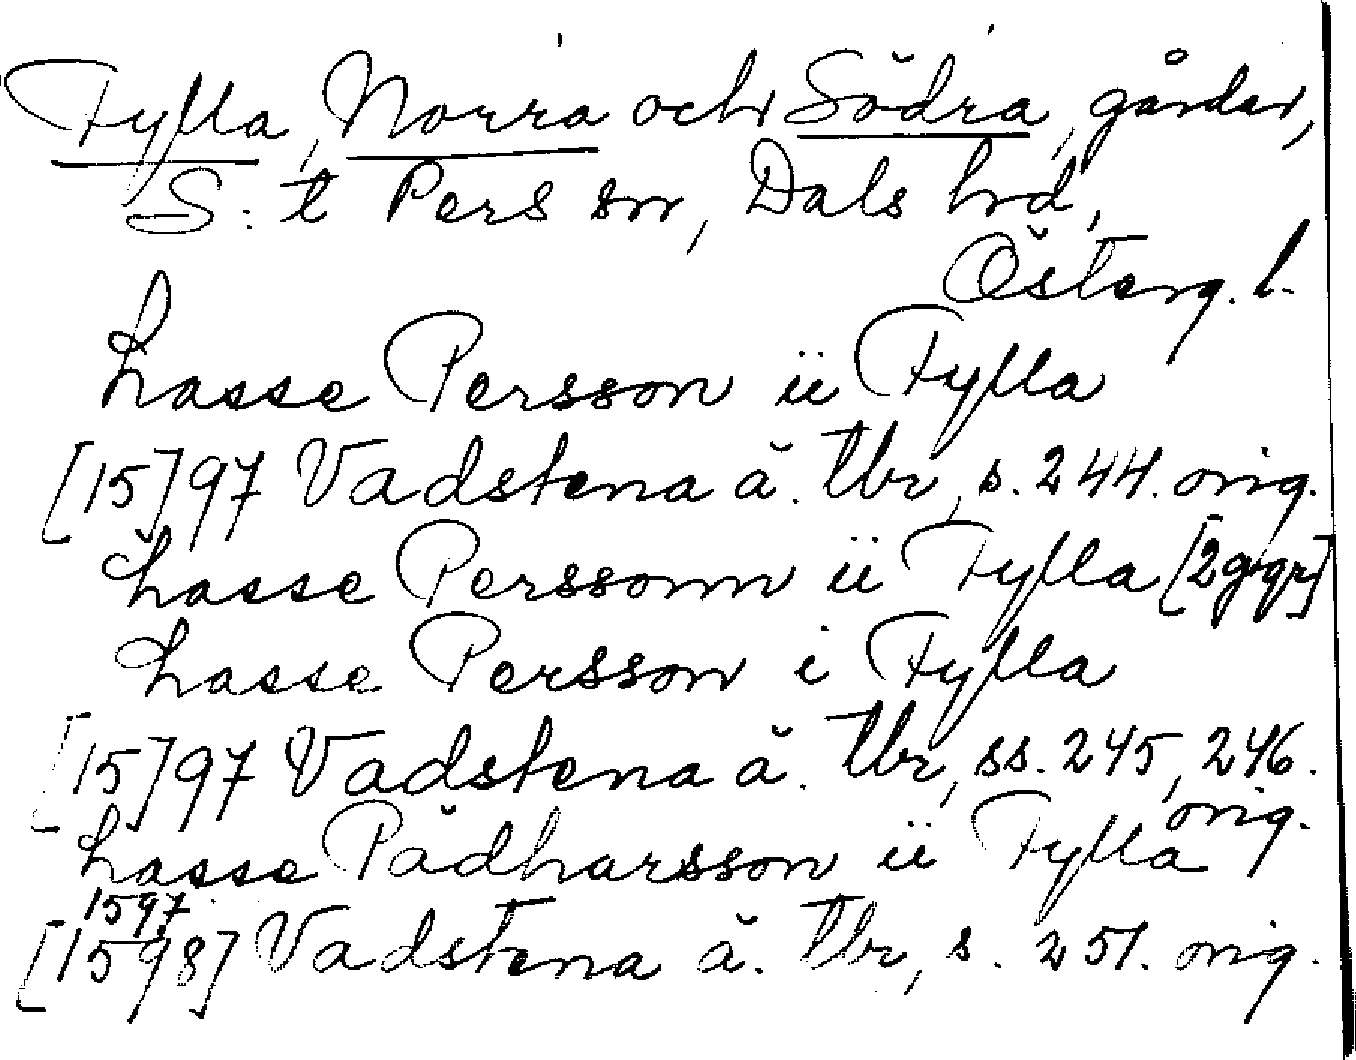 Fylla, Norra och Södra, gårdar,
S:t Pers sn, Dals hd,
Österg. l.
Lasse Persson ii Fylla
[15]97 Vadstena ä. tbr, s. 244. orig.
Lasse Perssonn ii Fylla [2 ggr]
Lasse Persson i Fylla
[15]97 Vadstena ä. tbr, ss. 245, 246.
orig.
Lasse Pädharsson ii Fylla
1597
[1598] Vadstena ä. tbr, s. 251. orig.